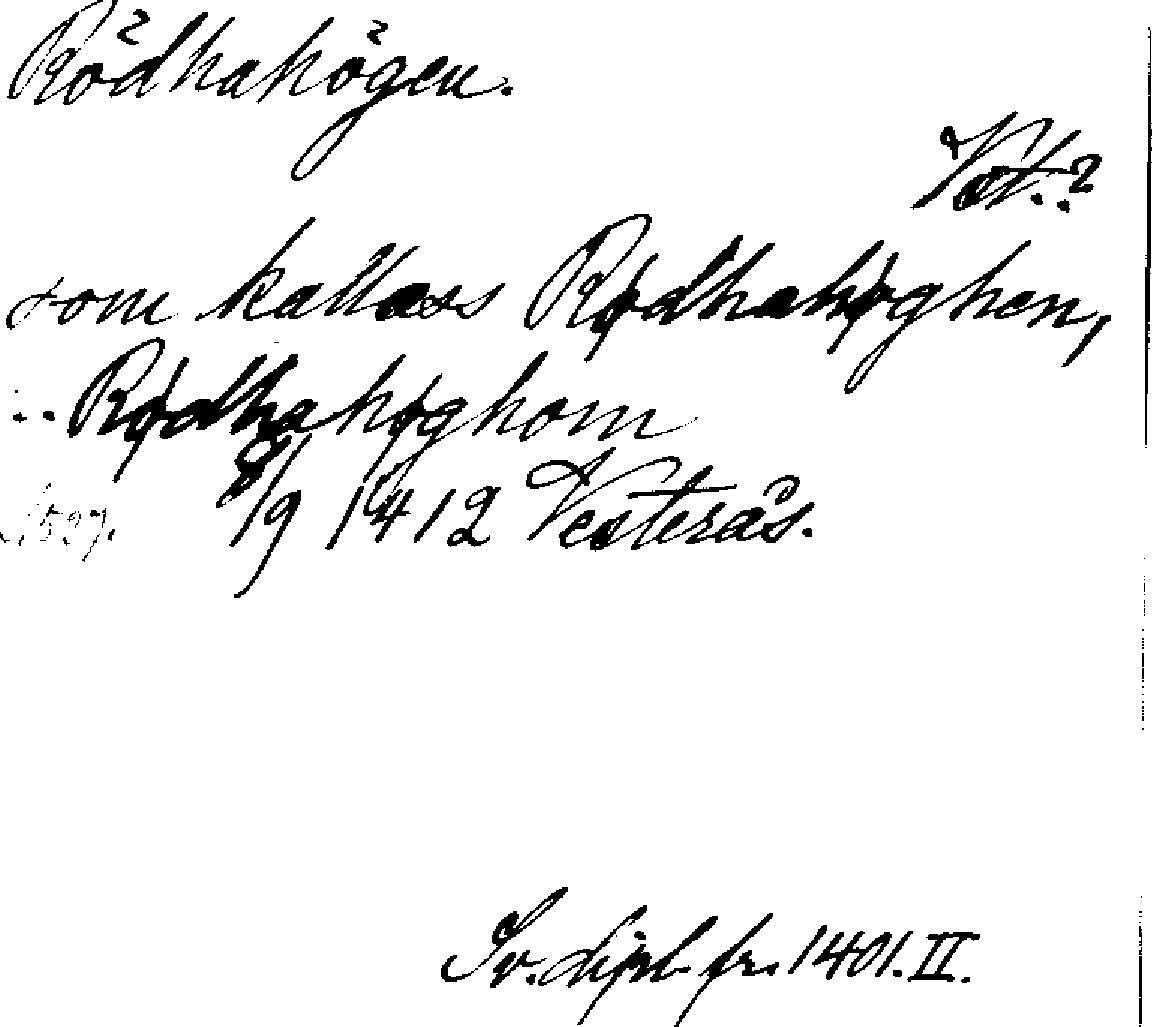 Rödhahögen.
Vst.?
som kallass Rødhahøghen,
.. Rødhahøghom
8/9 1412 Vesterås.
Sv. dipl. fr. 1401. II.